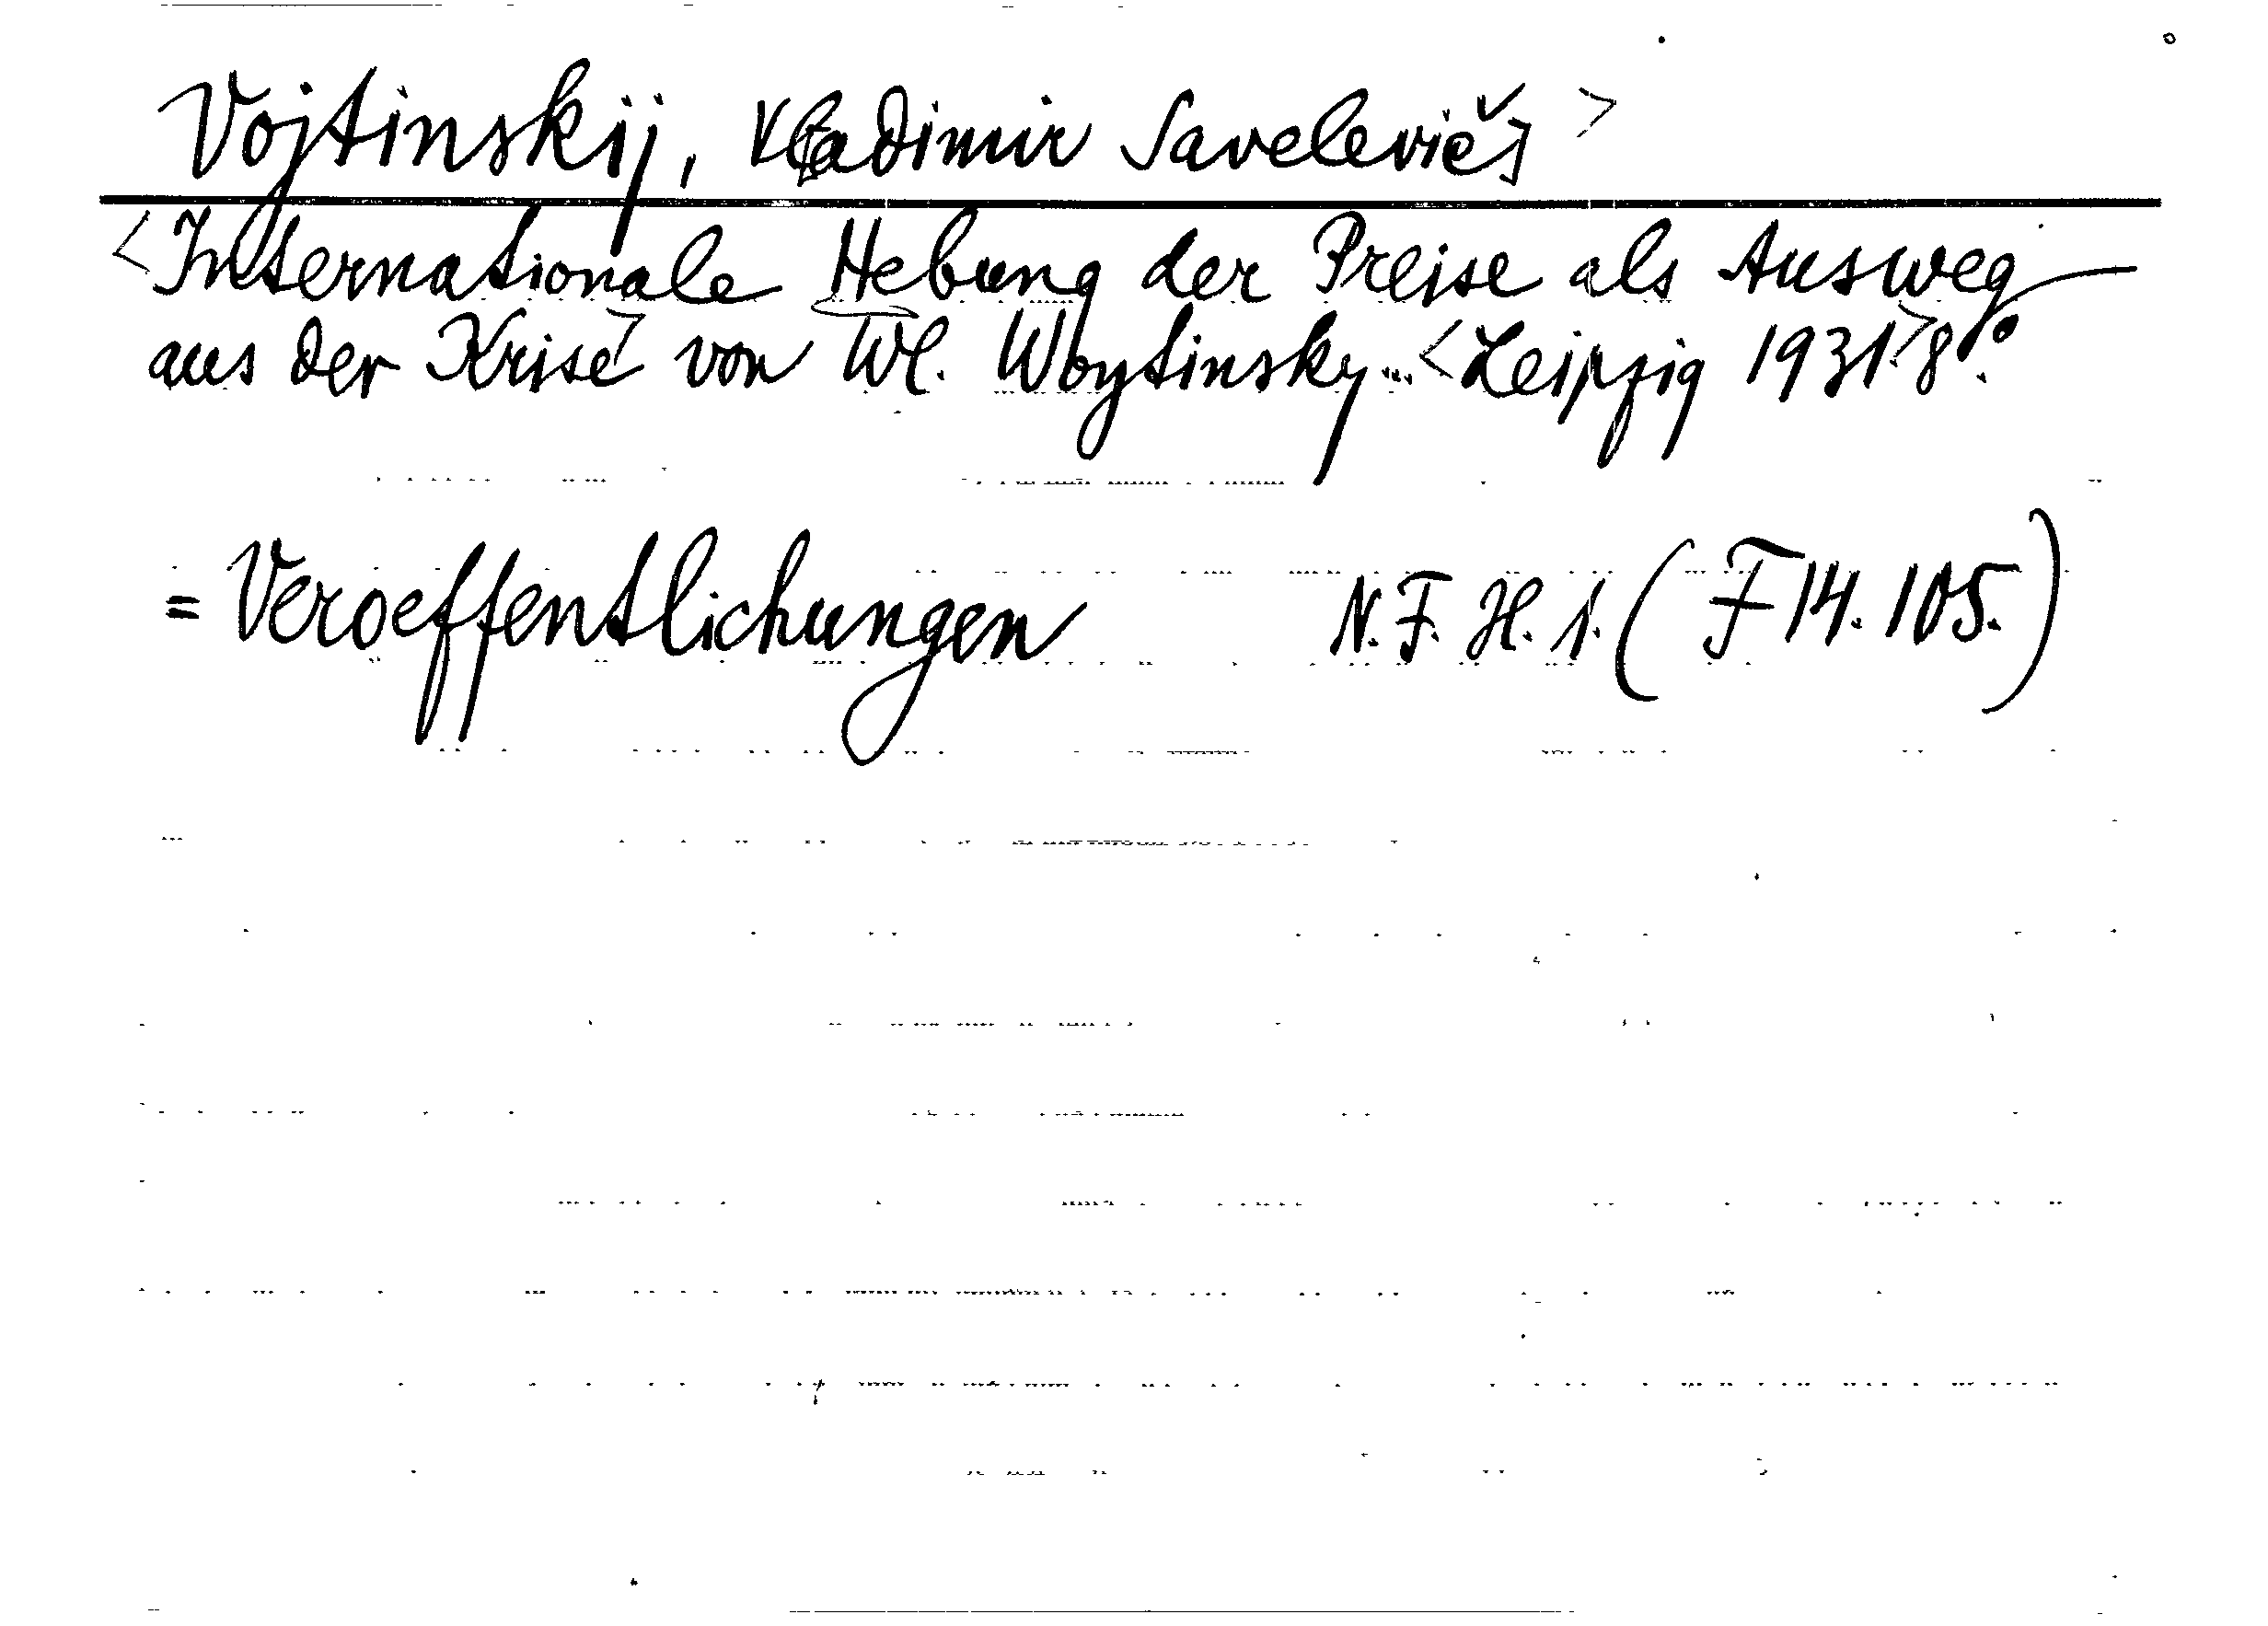 Vojtinskij, Vladimir Savelevič] >
<Internationale Hebung der Preise als Ausweg
aus der Krise> von Wl. Woytinsky... <Leipzig 1931.> 8°.
= Veroeffentlichungen N.F. H. 1. (F 14. 105.)